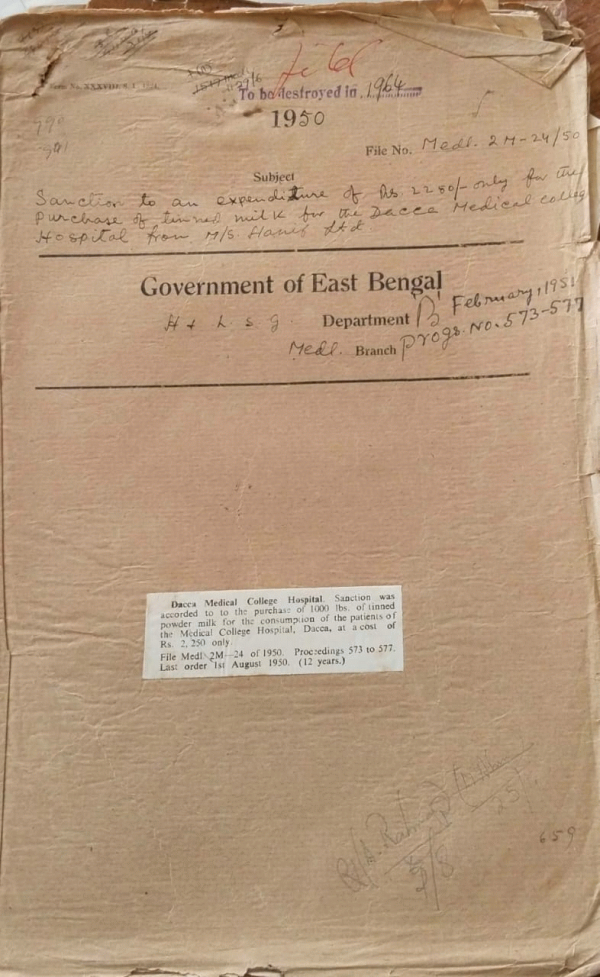 To be destroyed in 1964
1950
File No. Medl. 2M-24/50
Subject
Sanction to an expenditure of Rs. 2250/- only for the
purchase of tinned milk for the Dacca Medical college
Hospital from M/S. Hanif Ltd
Government of East Bengal
H & L S G Department 'B' February, 1951
Medl. Branch Progs. No. 573-577
Dacca Medical College Hospital. Sanction was
accorded to to the purchase of 1000 lbs. of tinned
powder milk for the consumption of the patients of
the Medical College Hospital, Dacca, at a cost of
Rs. 2,250 only.
File Medl. 2M—24 of 1950. Proceedings 573 to 577.
Last order 1st August 1950. (12 years.)
659